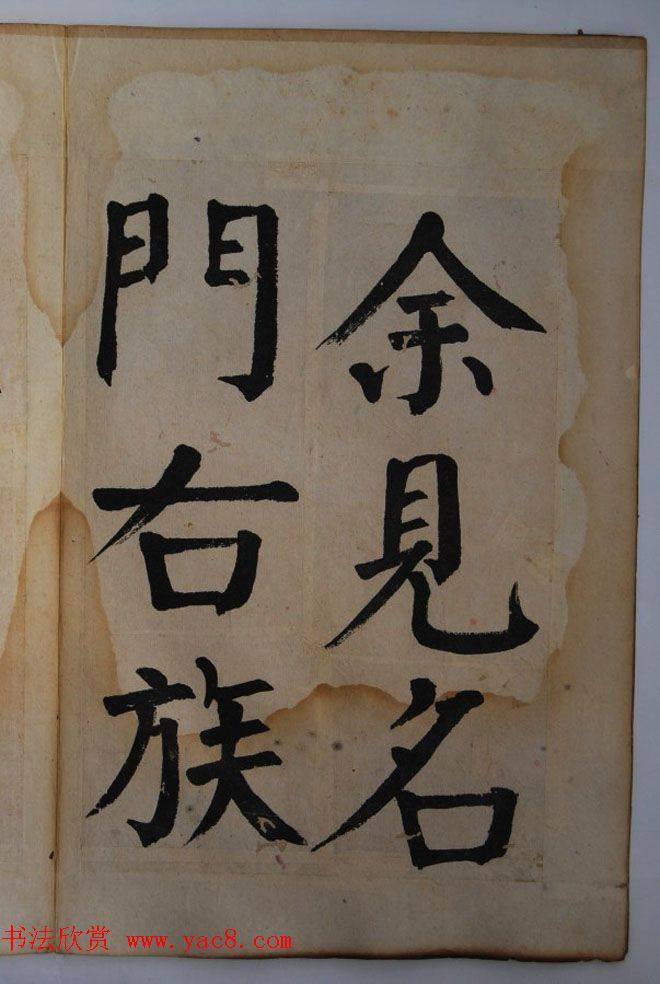 余見名
門右族
书法欣赏 www.yac8.com